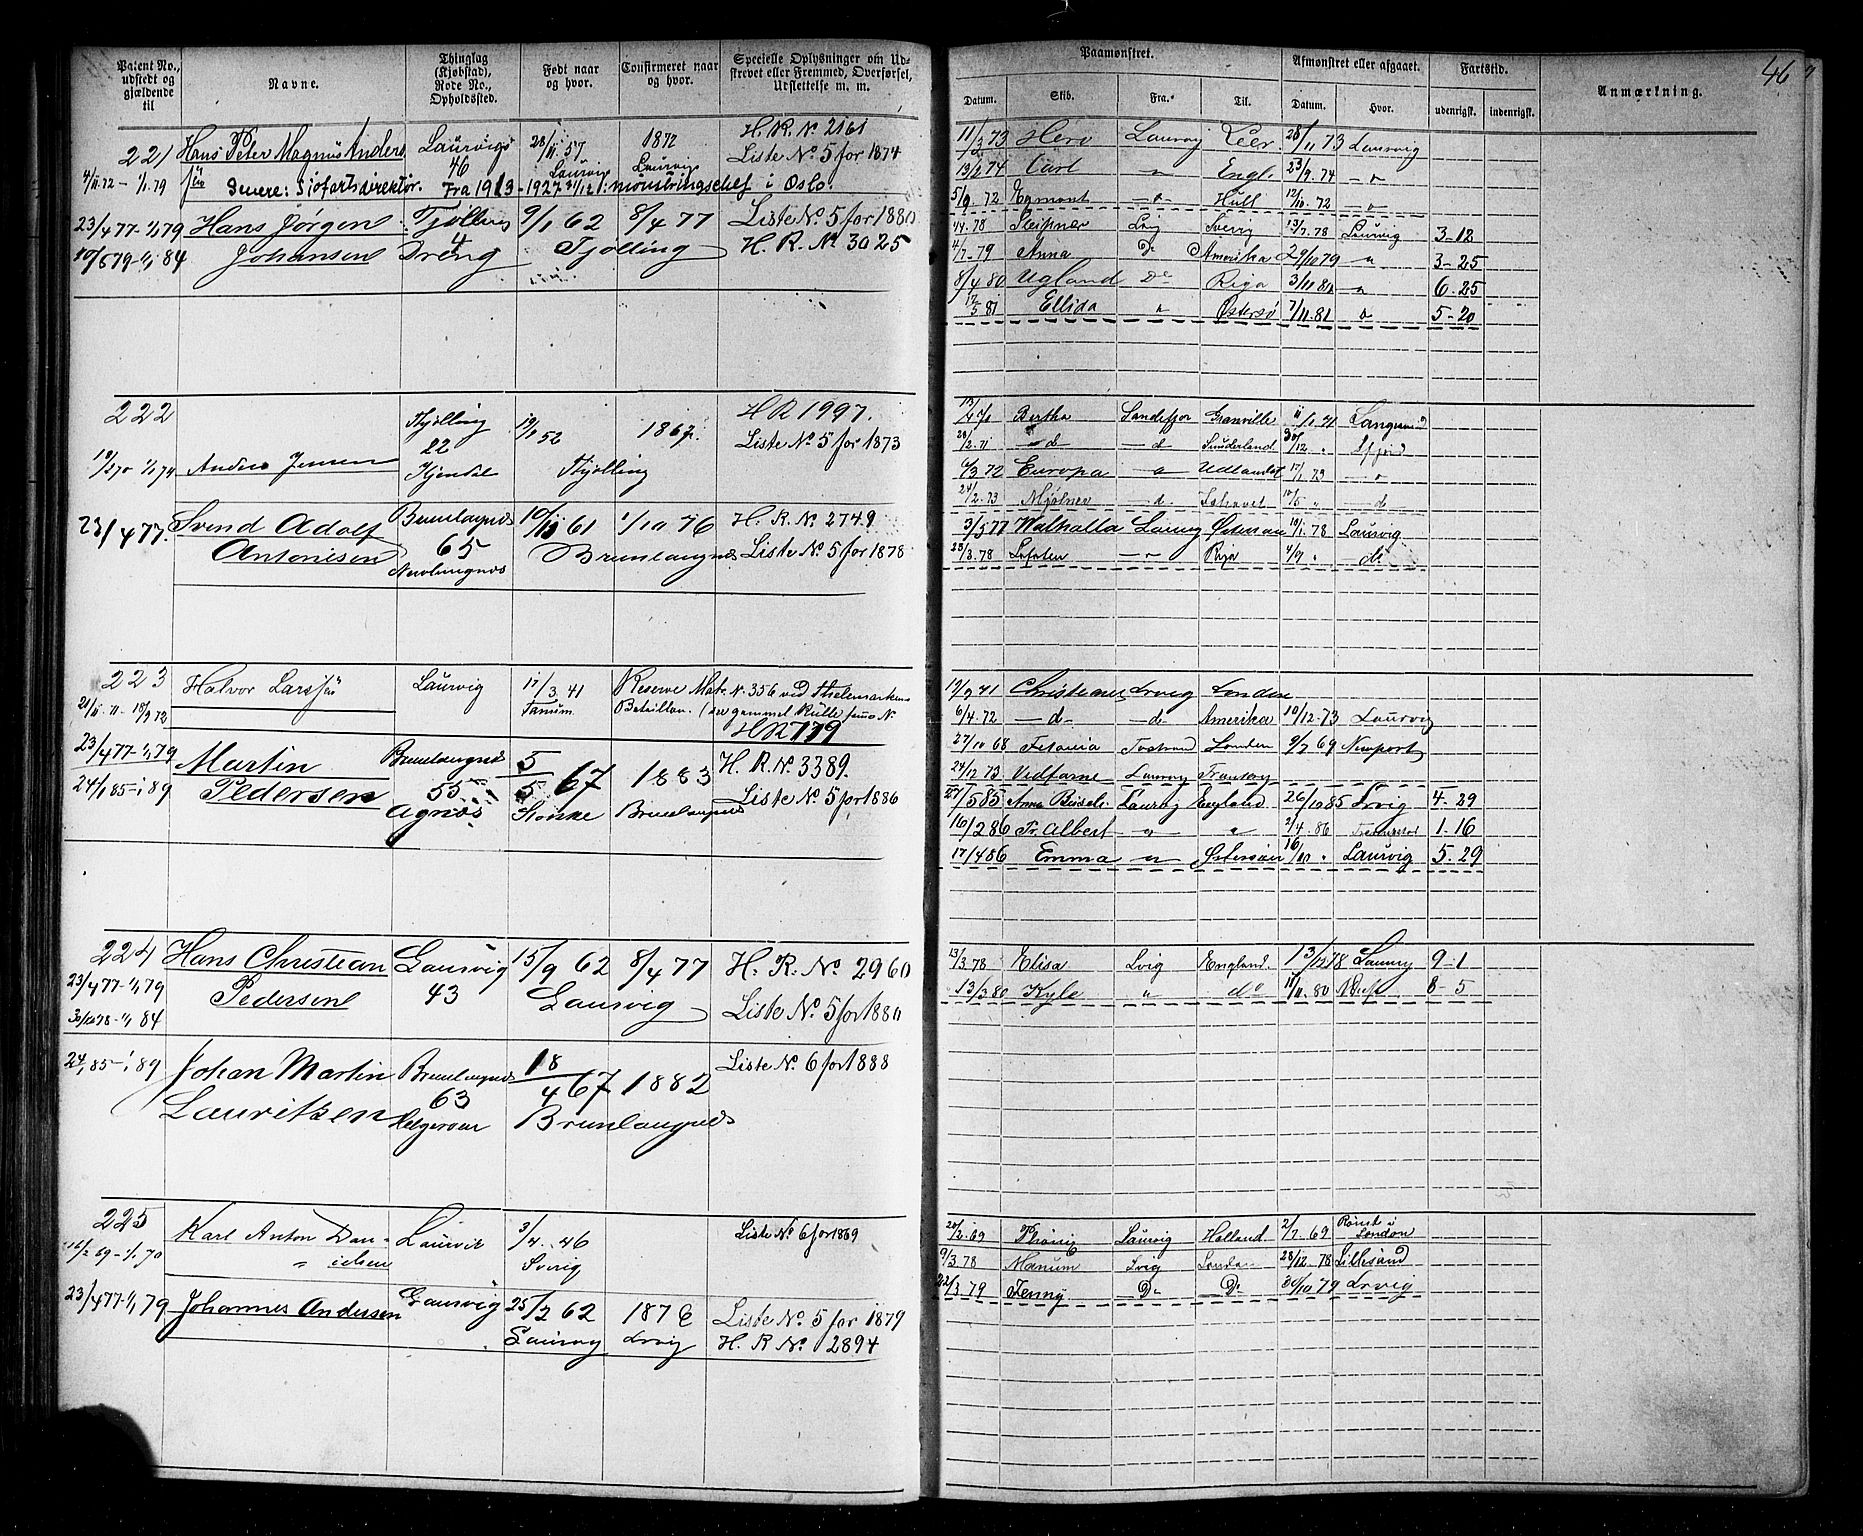 46
Patent No., udstedt og gjældende til
Navne.
Thinglag (Kjøbstad), Rode No., Opholdssted.
Født naar og hvor.
Confirmeret naar og hvor.
Specielle Oplysninger om Udskrevet eller Fremmed, Overførsel, Udslettelse m. m.
221 Hans Peter Magnus Anders Laurvigs 28/11 57 1872 H. R. No 2161
46 Laurvig Laurvig Liste No 5 for 1874
4/11 72 - 1/1 79 søn Senere: Sjofartsdirektør. Fra 1913 - 1927 31/12: mønstringschef i Oslo.
23/4 77 - 1/1 79 Hans Jørgen Tjølling 9/1 62 8/4 77 Liste No 5 for 1880
10/6 79 - 1/1 84 Johansen 4 Dreng Tjølling H. R. No 3025
222 Thjølling 19/1 52 1867 H R 1997.
22 Liste No 5 for 1873
19/2 70 1/1 74 Anders Jensen Hjendal Thjølling
23/4 77. Svend Adolf Brunlangnæs 10/11 61 1/10 76 H. R. No 2749
Antonisen 65 Brunlangnæs Liste No 5 for 1878
Nevlungnæs
223 Halvor Larssøn Laurvig 17/3 41 Reserve Mat. N. 356 ved Thelemarkens
21/11 71 - 18/9 72 Tanum Bataillon. (see gammel Rulle samme No
H R 779
23/4 77 - 1/1 79 Martin Brunlangnæs 5/5 67 1883 H. R. No. 3389.
24/1 85 - 1/1 89 Pedersen 55 Agnæs Stokke Brunlangnæs Liste No 5 for 1886
224 Hans Christian Laurvig 15/9 62 8/4 77 H. R. No 2960
23/4 77 - 1/1 79 Pedersen 43 Laurvig Liste No 5 for 1880
30/12 78 - 1/1 84
24/1 85 - 1/1 89 Johan Martin Brunlangnæs 18/4 67 1882 Liste No 6 for 1888
Lauritsen 63 Helgeroen Brunlangnæs
225 Karl Anton Dan- Laurvik 3/4 46 Liste No 6 for 1869
16/2 69 - 1/1 70 ielsen Sverig
23/4 77 - 1/1 79 Johannes Andersen Laurvig 25/2 62 1876 Liste No 5 for 1879
Laurvig Lrvig H. R No 2894
Paamønstret.
Afmønstret eller afgaaet.
Fartstid.
Anmærkning.
Datum. Skib. Fra. Til. Datum. Hvor. udenrigsk. indenrigsk.
11/3 73 Hero Laurvig Leer 28/11 73 Laurvig
13/2 74 Carl " Engl. 23/9 74 - " -
5/9 72 Egmont - " - Hull 12/10 72 - " -
4/4 78 Sleipner Lvig Sverig 13/7 78 Laurvig 3-12
4/7 79 Anna Do Amerika 29/10 79 " 3-25
8/4 80 Ugland Do Riga 3/11 80 " 6-25
17/5 81 Ellida " Østersø 7/11 81 " 5-20
Bertha Sandefjor Granville 11/10 71 Langesund
28/2 71 - d - - d - Sunderland 30/12 " Sfjord
6/3 72 Europa " Udlandet 17/1 73 - " -
24/2 73 Mjølner - d - 17/5 " - d -
3/5 77 Walhalla Laurvig Østersøen 19/1 78 Laurvig
23/3 78 Lofoten - " - Riga 4/9 " - do
19/9 71 Christiane Lrvig London
6/4 72 - d - - d - Amerika 10/12 73 Laurvig
27/10 68 London 9/7 69 Newport
24/12 73 Vidfarne Laurvig
27/5 85 Anna Laurvig England 26/10 85 Lrvig 4-29
16/2 86 Fr. Albert " " 2/4 86 1-16
17/4 86 Emma " Østersøen 16/10 " Laurvig 5-29
13/3 78 Elisa Lvig England 13/12 78 Laurvig 9-1
13/3 80 Kyle " do 18/11 80 8-5
20/2 69 Phønix Laurvig Holland 2/7 69 Rømt i London
9/3 78 Manum Lvig London 28/12 78 Lillesand
22/3 79 Jenny Do Do 30/10 79 Lrvig